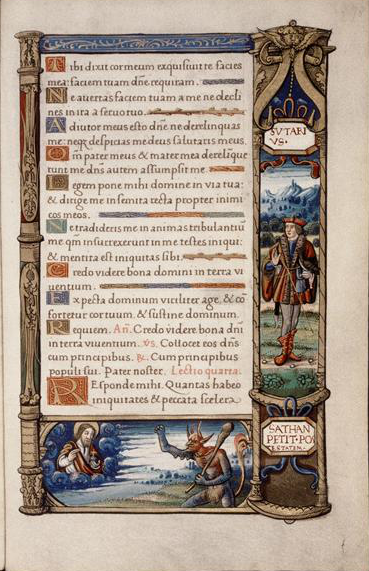 Tibi dixit cor meum exquisiuit te facies
mea: faciem tuam dñe requiram.
Ne auertas faciem tuam a me ne decli
nes in ira a seruo tuo.
Adiutor meus esto dñe ne derelinquas
me: neqз despicias me deus salutaris meus.
Qm̃ pater meus & mater mea dereliq̃e
runt me dñs autem assumpsit me.
Legem pone mihi domine in via tua:
& dirige me in semita recta propter inimi
cos meos.
Ne tradideris me in animas tribulantiũ
me qm̃ insurrexerunt in me testes iniqui:
& mentita est iniquitas sibi.
Credo videre bona domini in terra vi
uentium.
Expecta dominum viriliter age, & cõ
fortetur cor tuum, & sustine dominum.
Requiem. Añ. Credo videre bona dñi
in terra viuentium. Vs. Collocet eos dñs
cum principibus. ℟. Cum principibus
populi sui. Pater noster. Lectio quarta.
REsponde mihi. Quantas habeo
iniquitates & peccata scelera
SVTARI
VS.
SATHAN
PETIT PO
ESTATEM